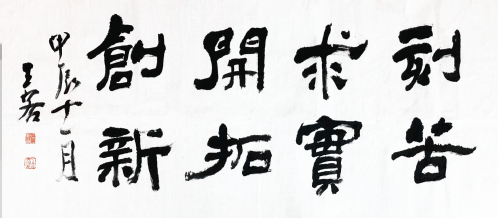 刻苦
求實
開拓
創新
甲辰十一月
王容